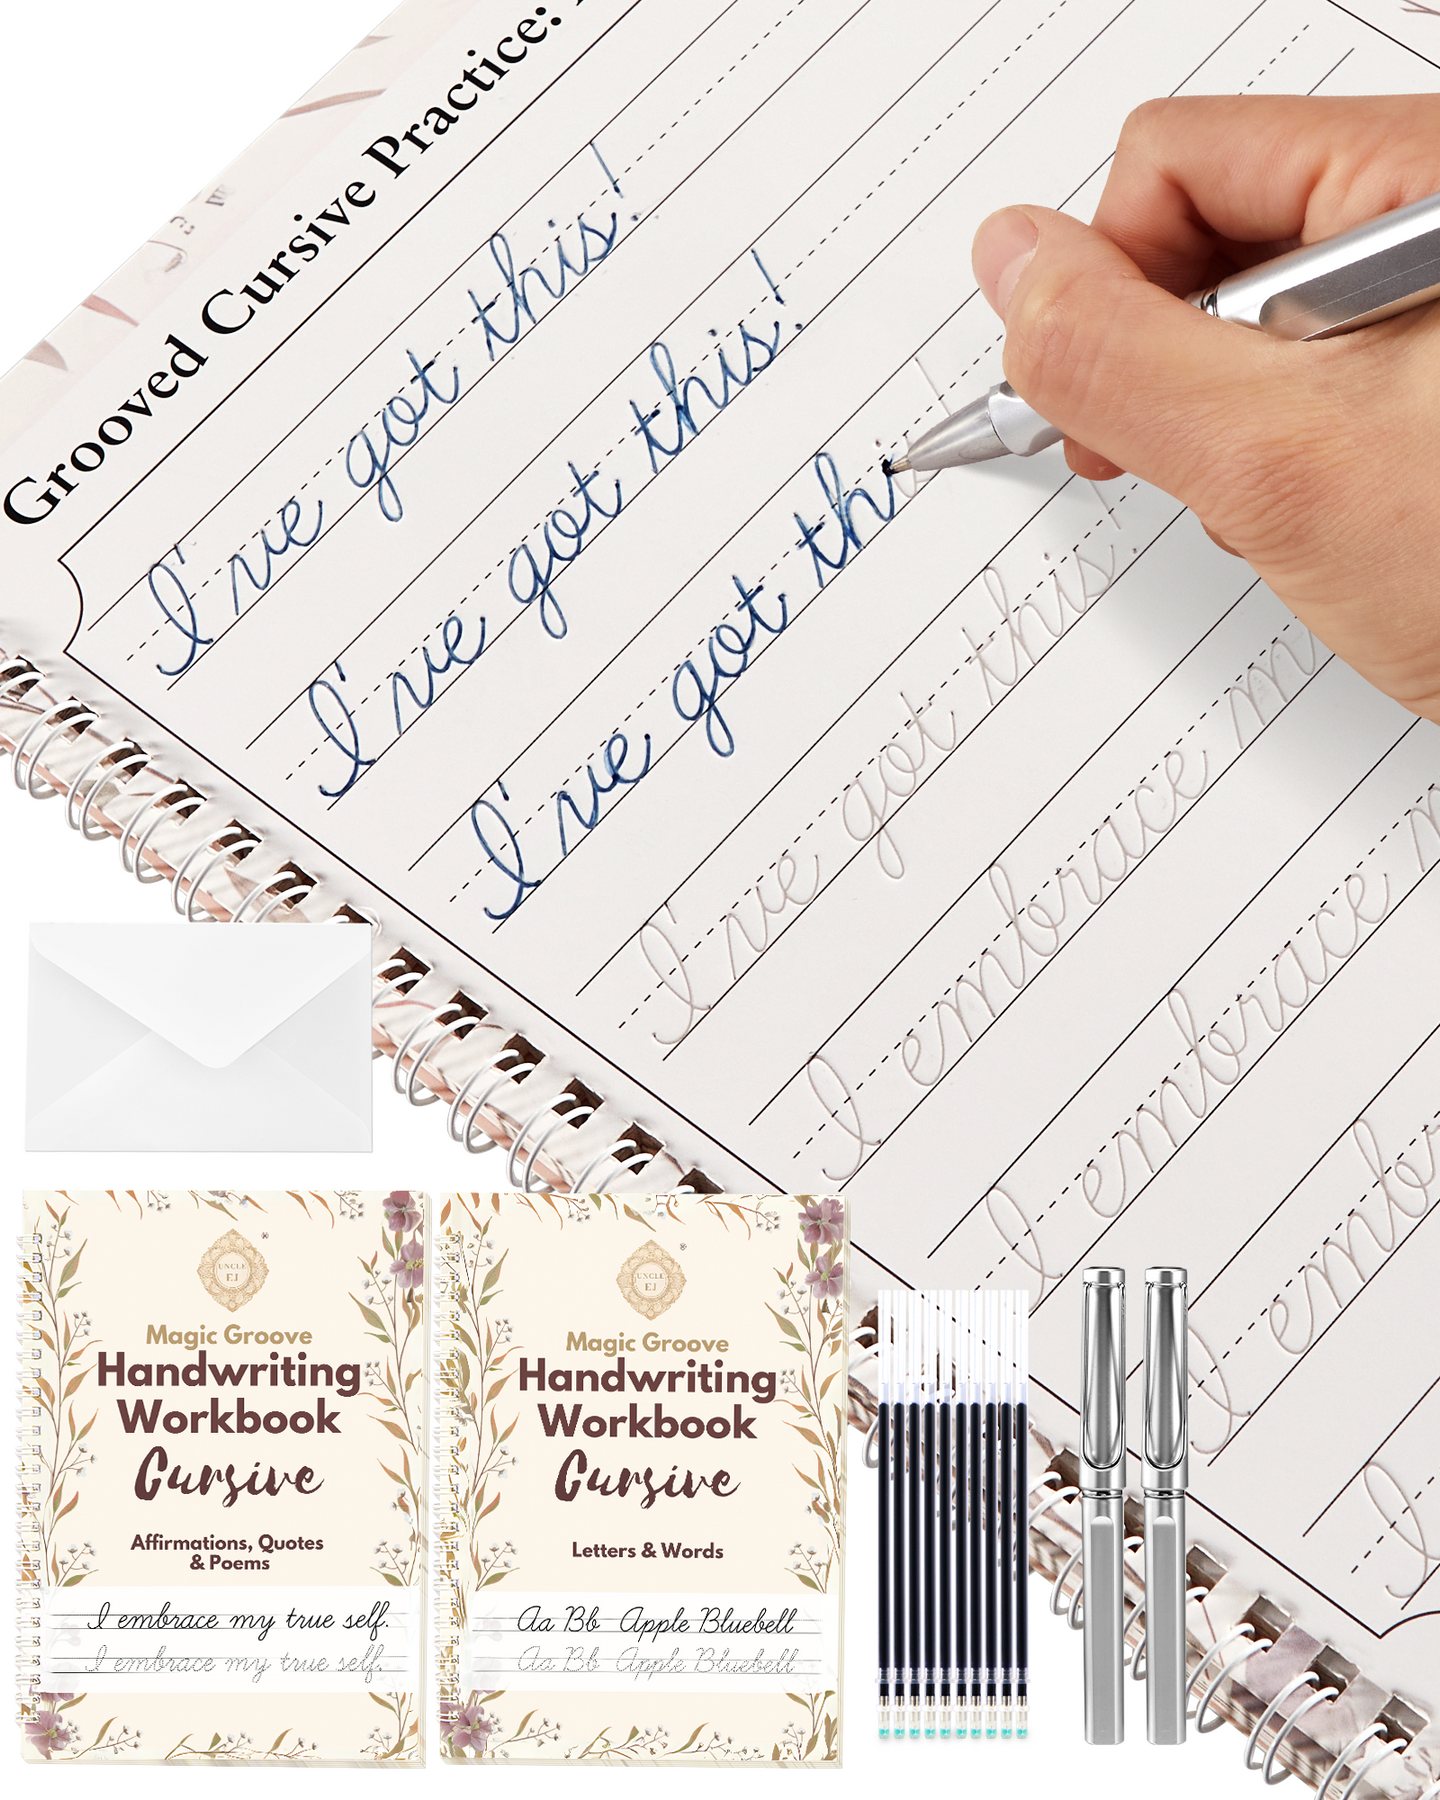 Grooved Cursive Practice:
I've got this!
I've got this!
I've got this!
I've got this!
I embrace m
I embrace m
I embr
I
UNCLE
EJ
®
Magic Groove
Handwriting
Workbook
Cursive
Affirmations, Quotes
& Poems
I embrace my true self.
I embrace my true self.
UNCLE
EJ
®
Magic Groove
Handwriting
Workbook
Cursive
Letters & Words
Aa Bb Apple Bluebell
Aa Bb Apple Bluebell